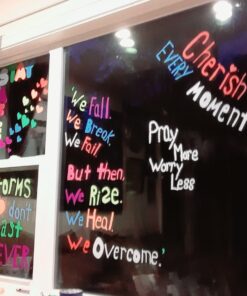 Cherish
EVERY
MOMENT
'We Fall.
We Break.
We Fail.
But then,
We Rise.
We Heal.
We Overcome.'
Pray
More
Worry
Less
don't